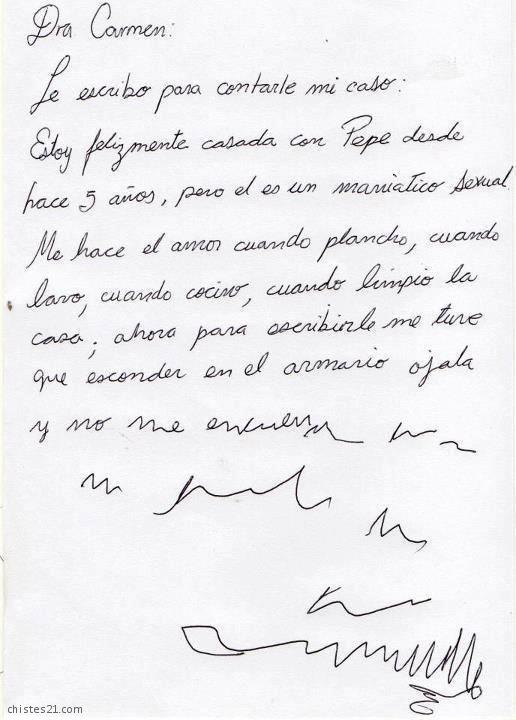 Dra Carmen:
Le escribo para contarle mi caso:
Estoy felizmente casada con Pepe desde
hace 5 años, pero el es un maniatico sexual.
Me hace el amor cuando plancho, cuando
lavo, cuando cocino, cuando limpio la
casa; ahora para escribirle me tuve
que esconder en el armario ojala
y no me encuen
chistes21.com